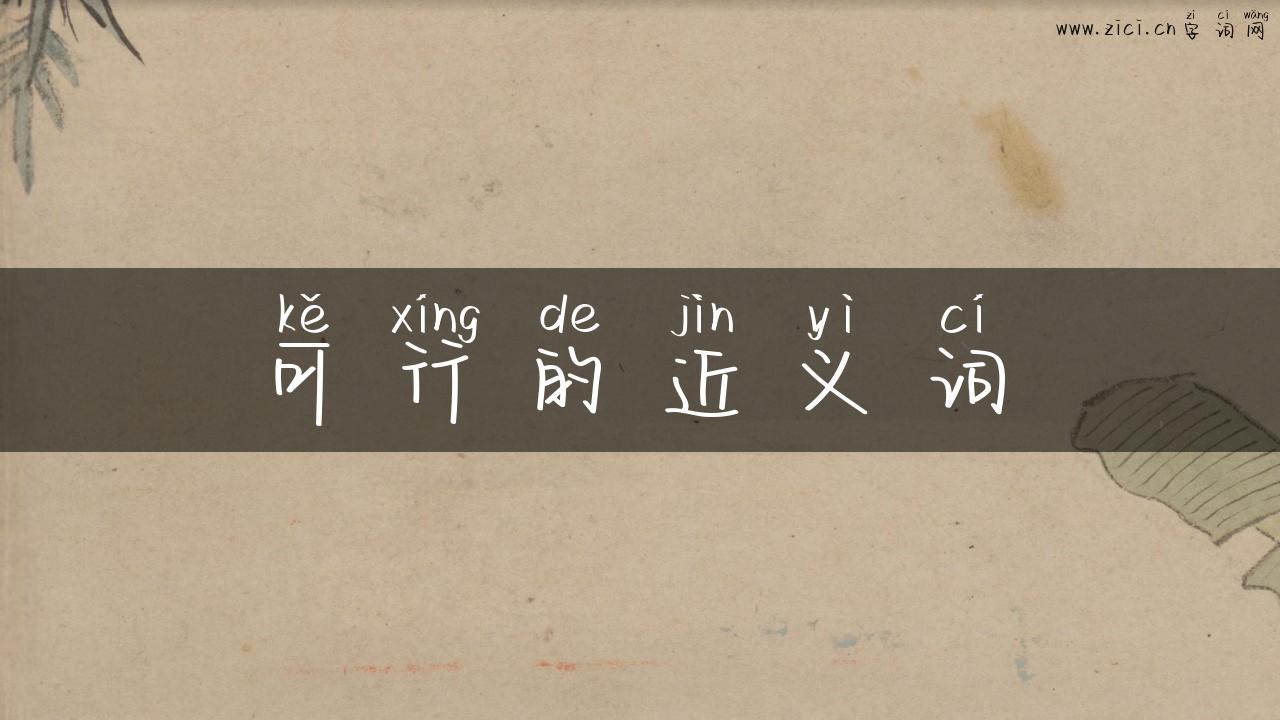 zì cí wǎng
www.zici.cn 字词网
kě xíng de jìn yì cí
可行的近义词